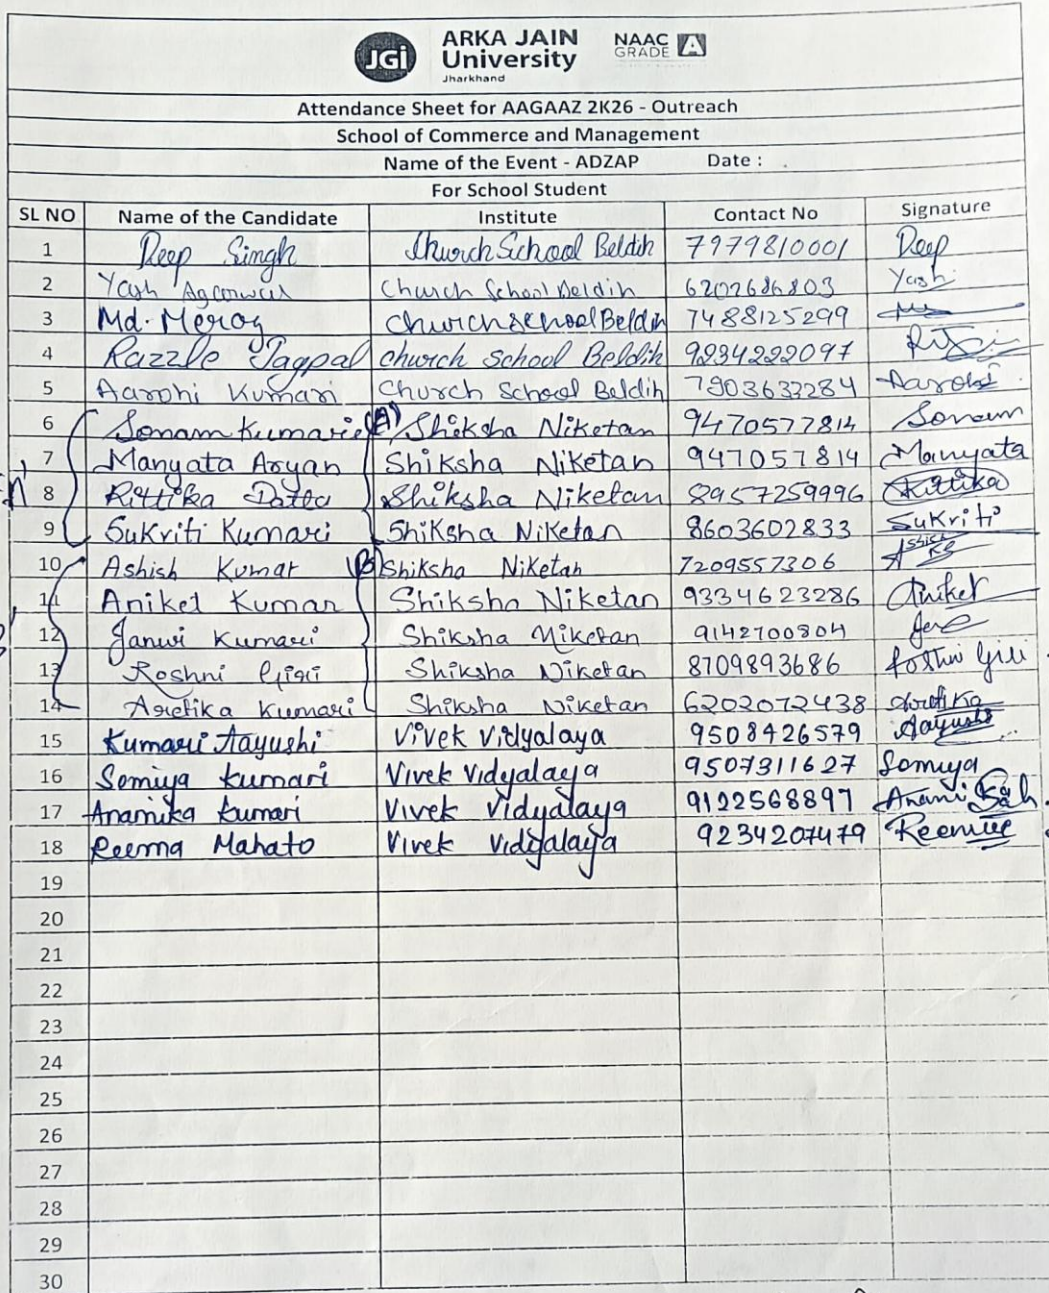 JGi
ARKA JAIN
University
Jharkhand
NAAC
GRADE A
Attendance Sheet for AAGAAZ 2K26 - Outreach
School of Commerce and Management
Name of the Event - ADZAP Date :
For School Student
SL NO Name of the Candidate Institute Contact No Signature
1 Deep Singh Church School Beldih 7979810001 Deep
2 Yash Agarwal Church School Beldih 6202686803 Yash
3 Md. Meroz Church school Beldih 7488125299
4 Razzle Jagpal church school Beldih 9234222097
5 Aarohi Kumari Church School Beldih 7903633284 Aarohi
6 Sonam Kumari (A) Shiksha Niketan 9470577814 Sonam
7 Manyata Aryan Shiksha Niketan 947057814 Manyata
8 Rittika Datta Shiksha Niketan 8957259996 Rittika
9 Sukriti Kumari Shiksha Niketan 8603602833 Sukriti
10 Ashish Kumar (B) Shiksha Niketan 7209557306 Ashish
11 Aniket Kumar Shiksha Niketan 9334623286 Aniket
12 Janvi Kumari Shiksha Niketan 9142700804
13 Roshni Giri Shiksha Niketan 8709893686 Roshni Giri
14 Aretika Kumari Shiksha Niketan 6202072438
15 Kumari Aayushi Vivek Vidyalaya 9508426579 Aayushi
16 Somiya Kumari Vivek Vidyalaya 9507311627 Somiya
17 Anamika Kumari Vivek Vidyalaya 9122568897
18 Reema Mahato Vivek Vidyalaya 9234207479
19
20
21
22
23
24
25
26
27
28
29
30